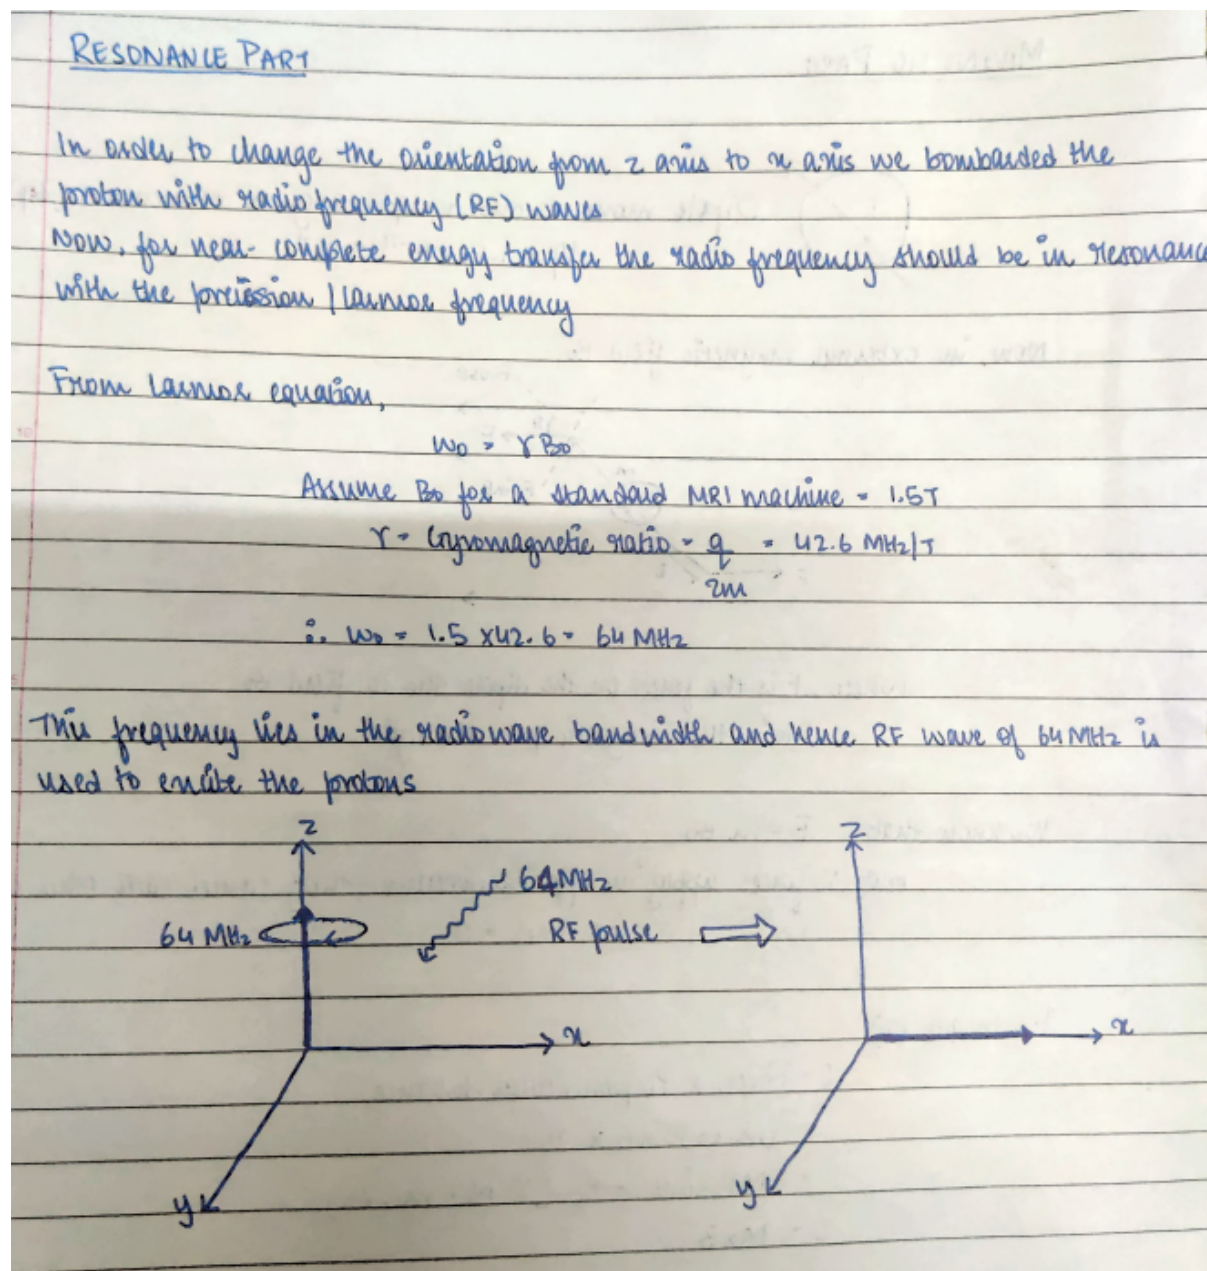 RESONANCE PART
In order to change the orientation from z axis to x axis we bombarded the
proton with radio frequency (RF) waves
Now, for near-complete energy transfer the radio frequency should be in resonance
with the precission / larmor frequency
From larmor equation,
ω₀ = γ B₀
Assume B₀ for a standard MRI machine = 1.5T
γ = Gyromagnetic ratio = q/2m = 42.6 MHz/T
∴ ω₀ = 1.5 x 42.6 = 64 MHz
This frequency lies in the radiowave bandwidth and hence RF wave of 64 MHz is
used to excite the protons
z z
64 MHz
64 MHz RF pulse
x x
y y